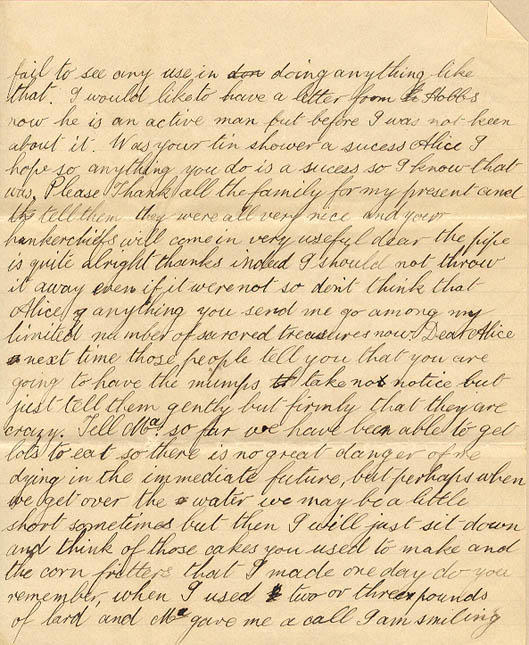 fail to see any use in doing anything like
that. I would like to have a letter from Hobbs
now he is an active man but before I was not keen
about it. Was your tin shower a sucess Alice I
hope so, anything you do is a sucess so I know that
was. Please Thank all the family for my present and
tell them they were all very nice and your
hankerchiefs will come in very useful dear the pipe
is quite alright thanks indeed I should not throw
it away even if it were not so don't think that
Alice, anything you send me go among my
limited number of sarcred treasures now. Dear Alice
next time those people tell you that you are
going to have the mumps take not notice but
just tell them gently but firmly that they are
crazy. Tell Ma. so far we have been able to get
lots to eat so there is no great danger of me
dying in the immediate future, but perhaps when
we get over the water we may be a little
short sometimes but then I will just sit down
and think of those cakes you used to make and
the corn fritters that I made one day do you
remember, when I used two or three pounds
of lard and Ma gave me a call I am smiling